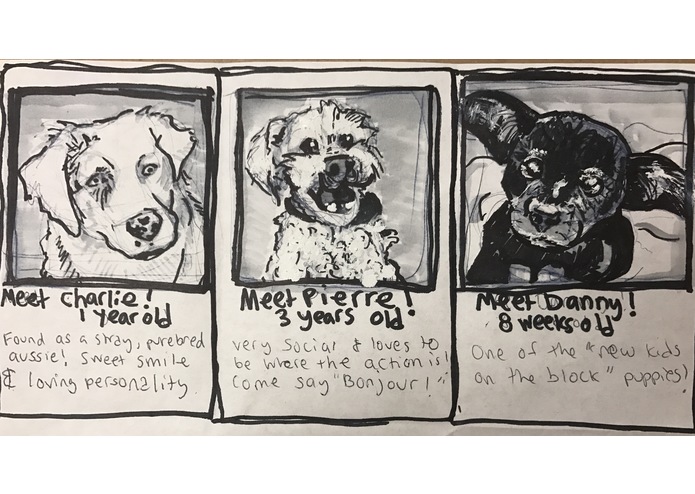 Meet Charlie!
1 year old
Found as a stray, purebred
aussie! Sweet smile
& loving personality.
Meet Pierre!
3 years old
very social & loves to
be where the action is!
Come say "Bonjour!"
Meet Danny!
8 weeks old
One of the "new kids
on the block" puppies!